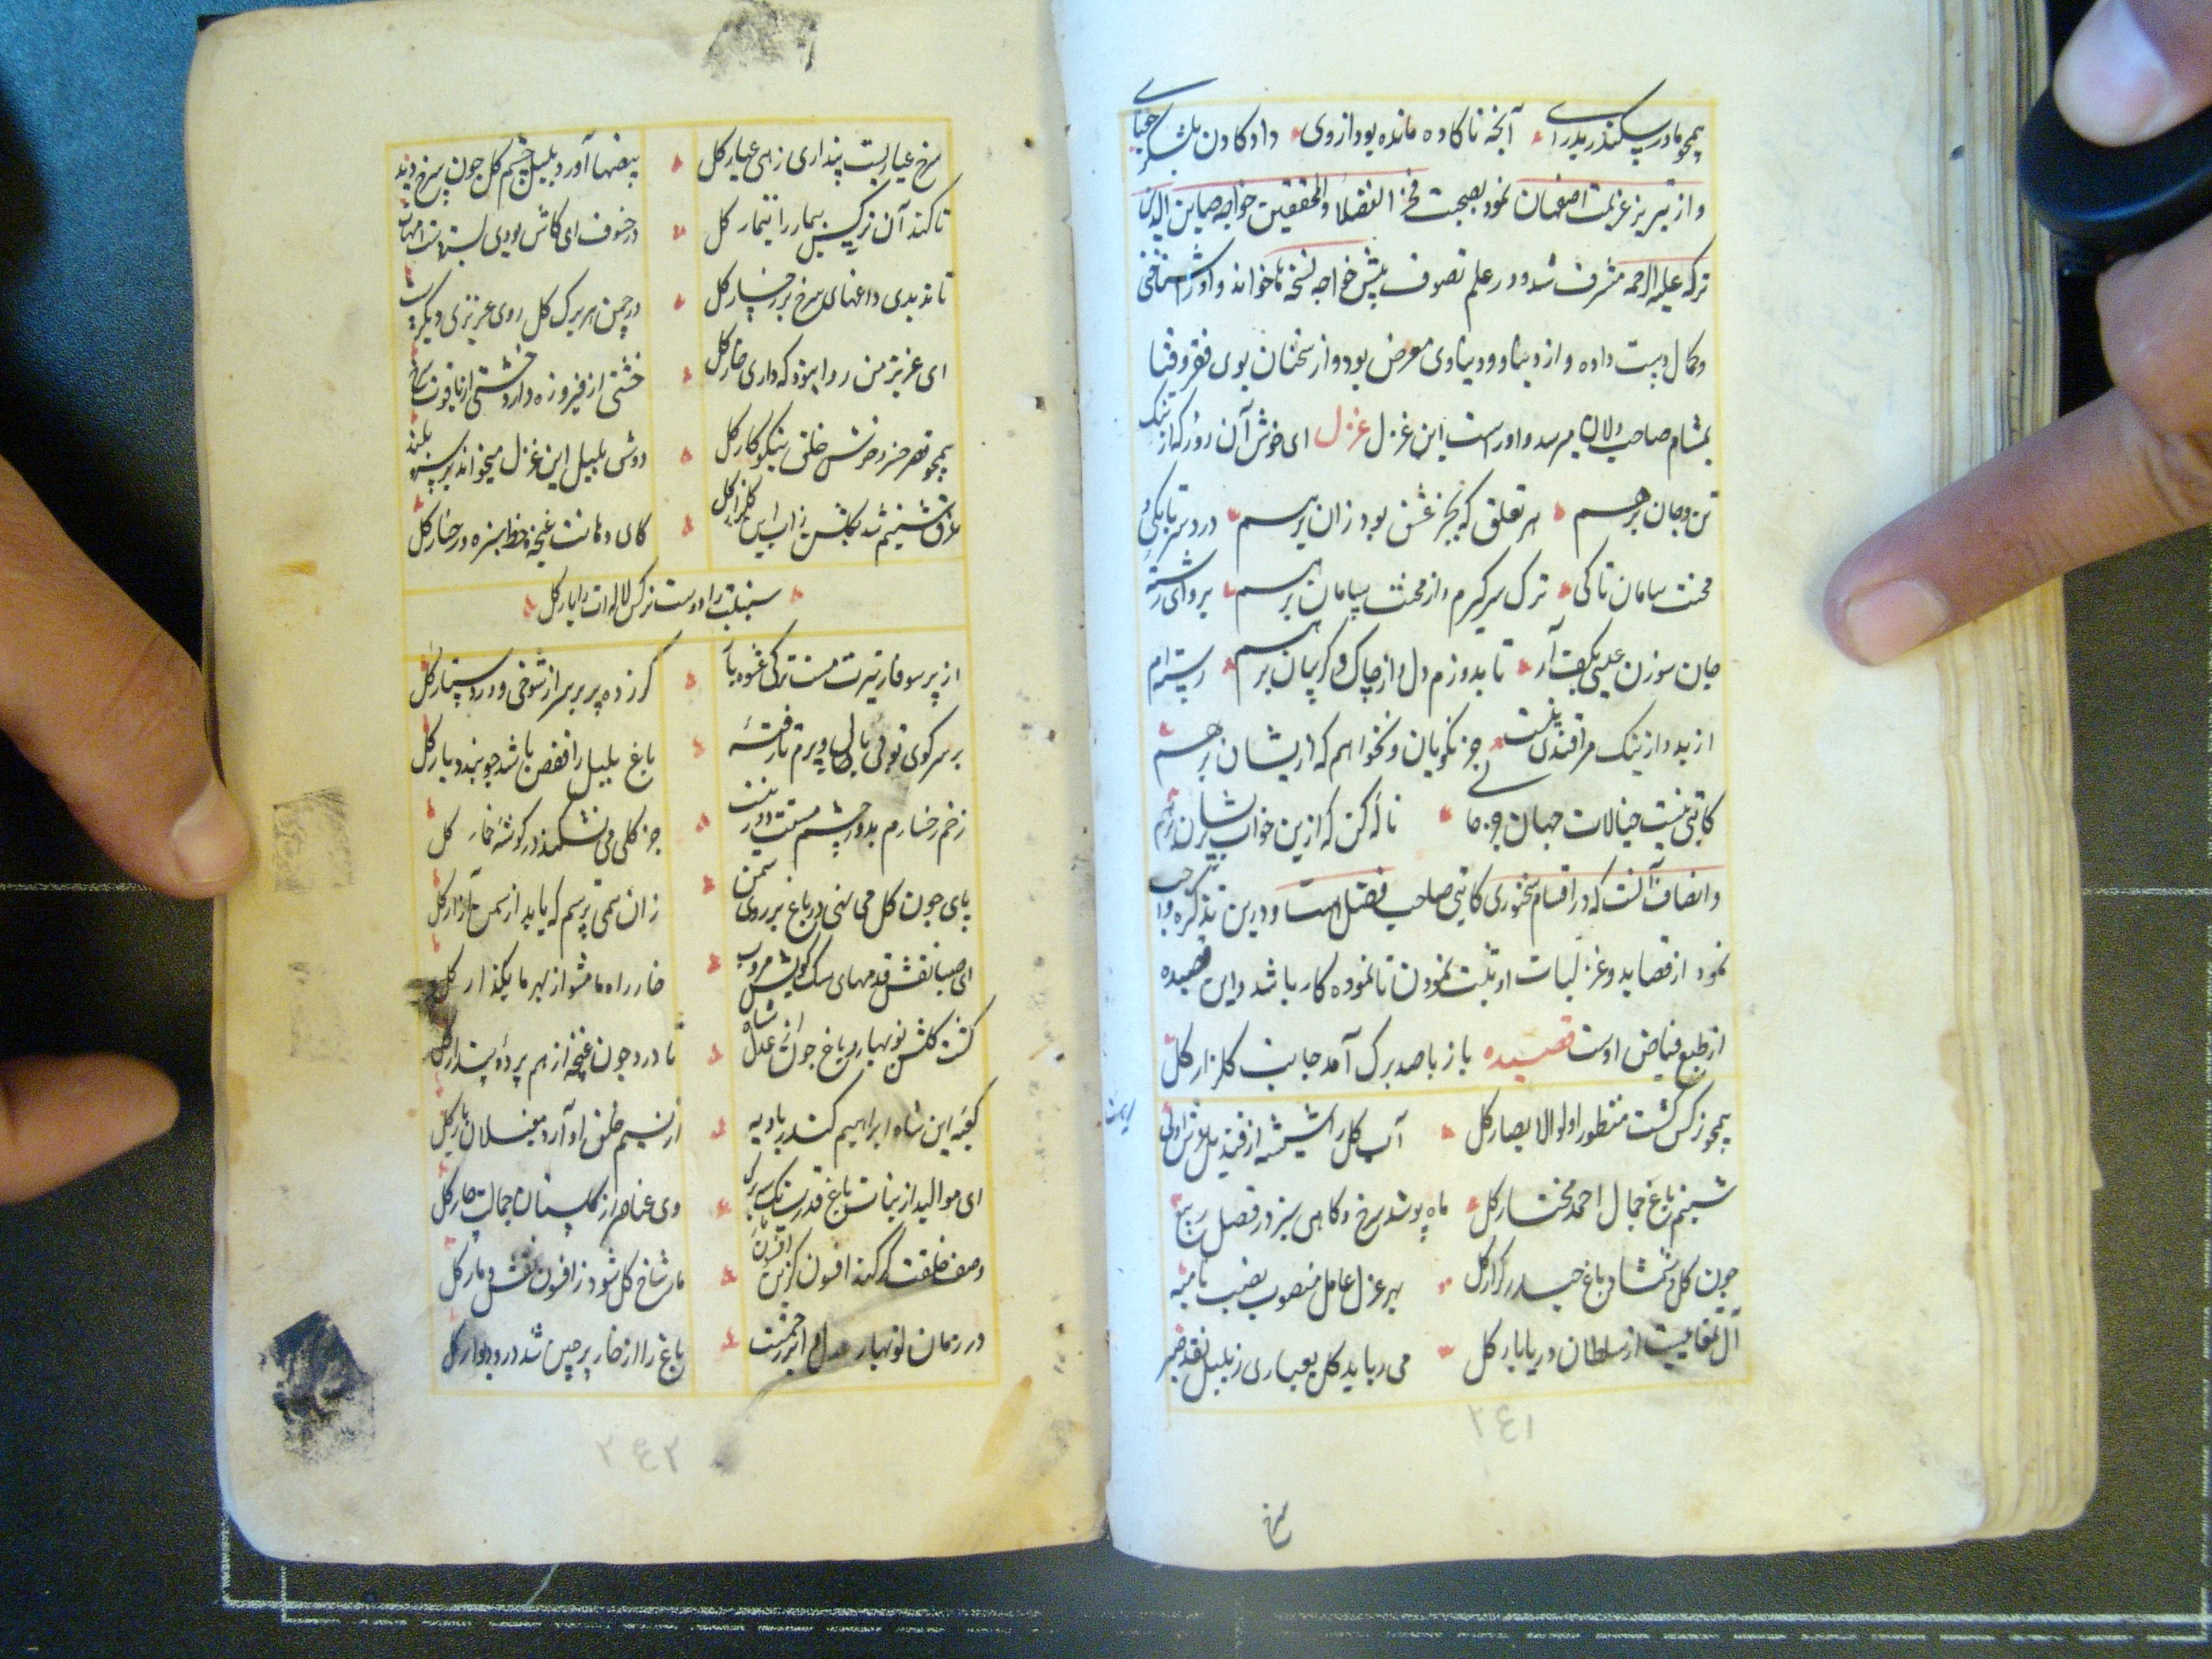 همچو مادر سکندر پدرای آنچه ناکاوه مانده بود از وی داد کاون بلشکر جغتای
و از تبریز عزیمت اصفهان نمود بصحبت فخر الفضلا والمحققین خواجه صاین الدین
ترکه علیه الرحمه مشرف شد و در علم تصوف پیش خواجه نسخه ها خواند و او را
و کمال دست داده و از دنیا و دنیاوی معرض بود و از سخنان بوی فقر و فنا
بمشام صاحب دلان میرسد و اوراست این غزل غزل ای خوش آن روز که از تنک
تن و جان برهم هر تعلق که بجز عشق بود زان برهم درد سر تا بکی و
محنت سامان تا کی ترک سر گیرم و از محنت سامان برهم بر وای رشته
جان سوزن عیسی بکف آر تا بدوزم دل و از چاک گریبان برهم رسته ام
از بد و از نیک مرا قیدی نیست جز نکویان و نخواهم که از ایشان برهم
کاتبی نیست خیالات جهان جز ما ناله کن که ازین خواب پریشان برهم
و انصاف آنست که در اقسام سخنوری کاتبی صاحب فضل است و درین تذکره واجب
نمود از قصاید و غزلیات او ثبت نمودن تا نموده کار باشد و این قصیده
از طبع فیاض اوست قصیده باز با صد برک آمد جانب کلزار کل
همچو نرکس کشت منظور اولوالابصار کل آب کل را شیشه از قندیل عرش اولی
شبنم باغ جمال احمد مختار کل ماه پوشد سرخ و کاهی سبز در فصل ربیع
چون کل و شمشاد باغ حیدر کرار کل بهر عزل عامل منصوب نصب نامیه
آل تمغائیست از سلطان دریابار کل می رباید کل بعیاری ز بلبل نقد صبر
۲٤۱
سرخ
سرخ عیاریست پنداری زهی عیار کل بیضها آورد بلبل چشم کل چون سرخ دید
تا کند آن نرکس بیمار را تیمار کل در خسوف ای کاش بودی
تا ندیدی داغهای سرخ بر رخسار کل در چمن هر برک کل روی عزیزی دیکریست
ای عزیز من روا نبود که داری خار کل خشتی از فیروزه دارد خشتی از یاقوت سرخ
همچو قصر خسرو خوش خلق نیکو کار کل دوش بلبل این غزل میخواند بر سرو بلند
غرق شبنم شد بکلشن زآب این کلزار کل کای دهانت غنچه و خط سبزه و رخسار کل
سنبلت را دوست نرکس لاله ات را یار کل
از پر سوفار تیرت مست ترکی عشوه باز کر زده پر بر سر از شوخی و در دستار کل
بر سر کوی تو فی بالی و پرم تا رفته باغ بلبل را قفص باشد چو بندد بار کل
زخم رخسارم بدور چشم مستت دور نیست جز کلی می نشکفد در کوشه خار کل
پای چون کل می نهی در باغ بر روی سمن زان سمی ترسم که یابد از سمن آزار کل
ای صبا نقش قدمهای سک کویش مروب خار راه ما مشو از بهر ما بکذار کل
کشت کلشن نوبهار و باغ چون از عدل شاه تا درد چون غنچه از هم پرده پندار کل
کعبه این شاه ابراهیم کندر بادیه از نسیم خلق او آرد مغیلان بار کل
ای موالید از نبات باغ قدرت یک سه برک وی عناصر از کلستان جمالت چار کل
وصف خلقت کر کند افسون کر افسون مار مار شاخ کل شود ز افسون نقش دمار کل
در زمان نوبهار عدل ابر رحمتست باغ را از خار پرچین شد در و دیوار کل
۲٤۲